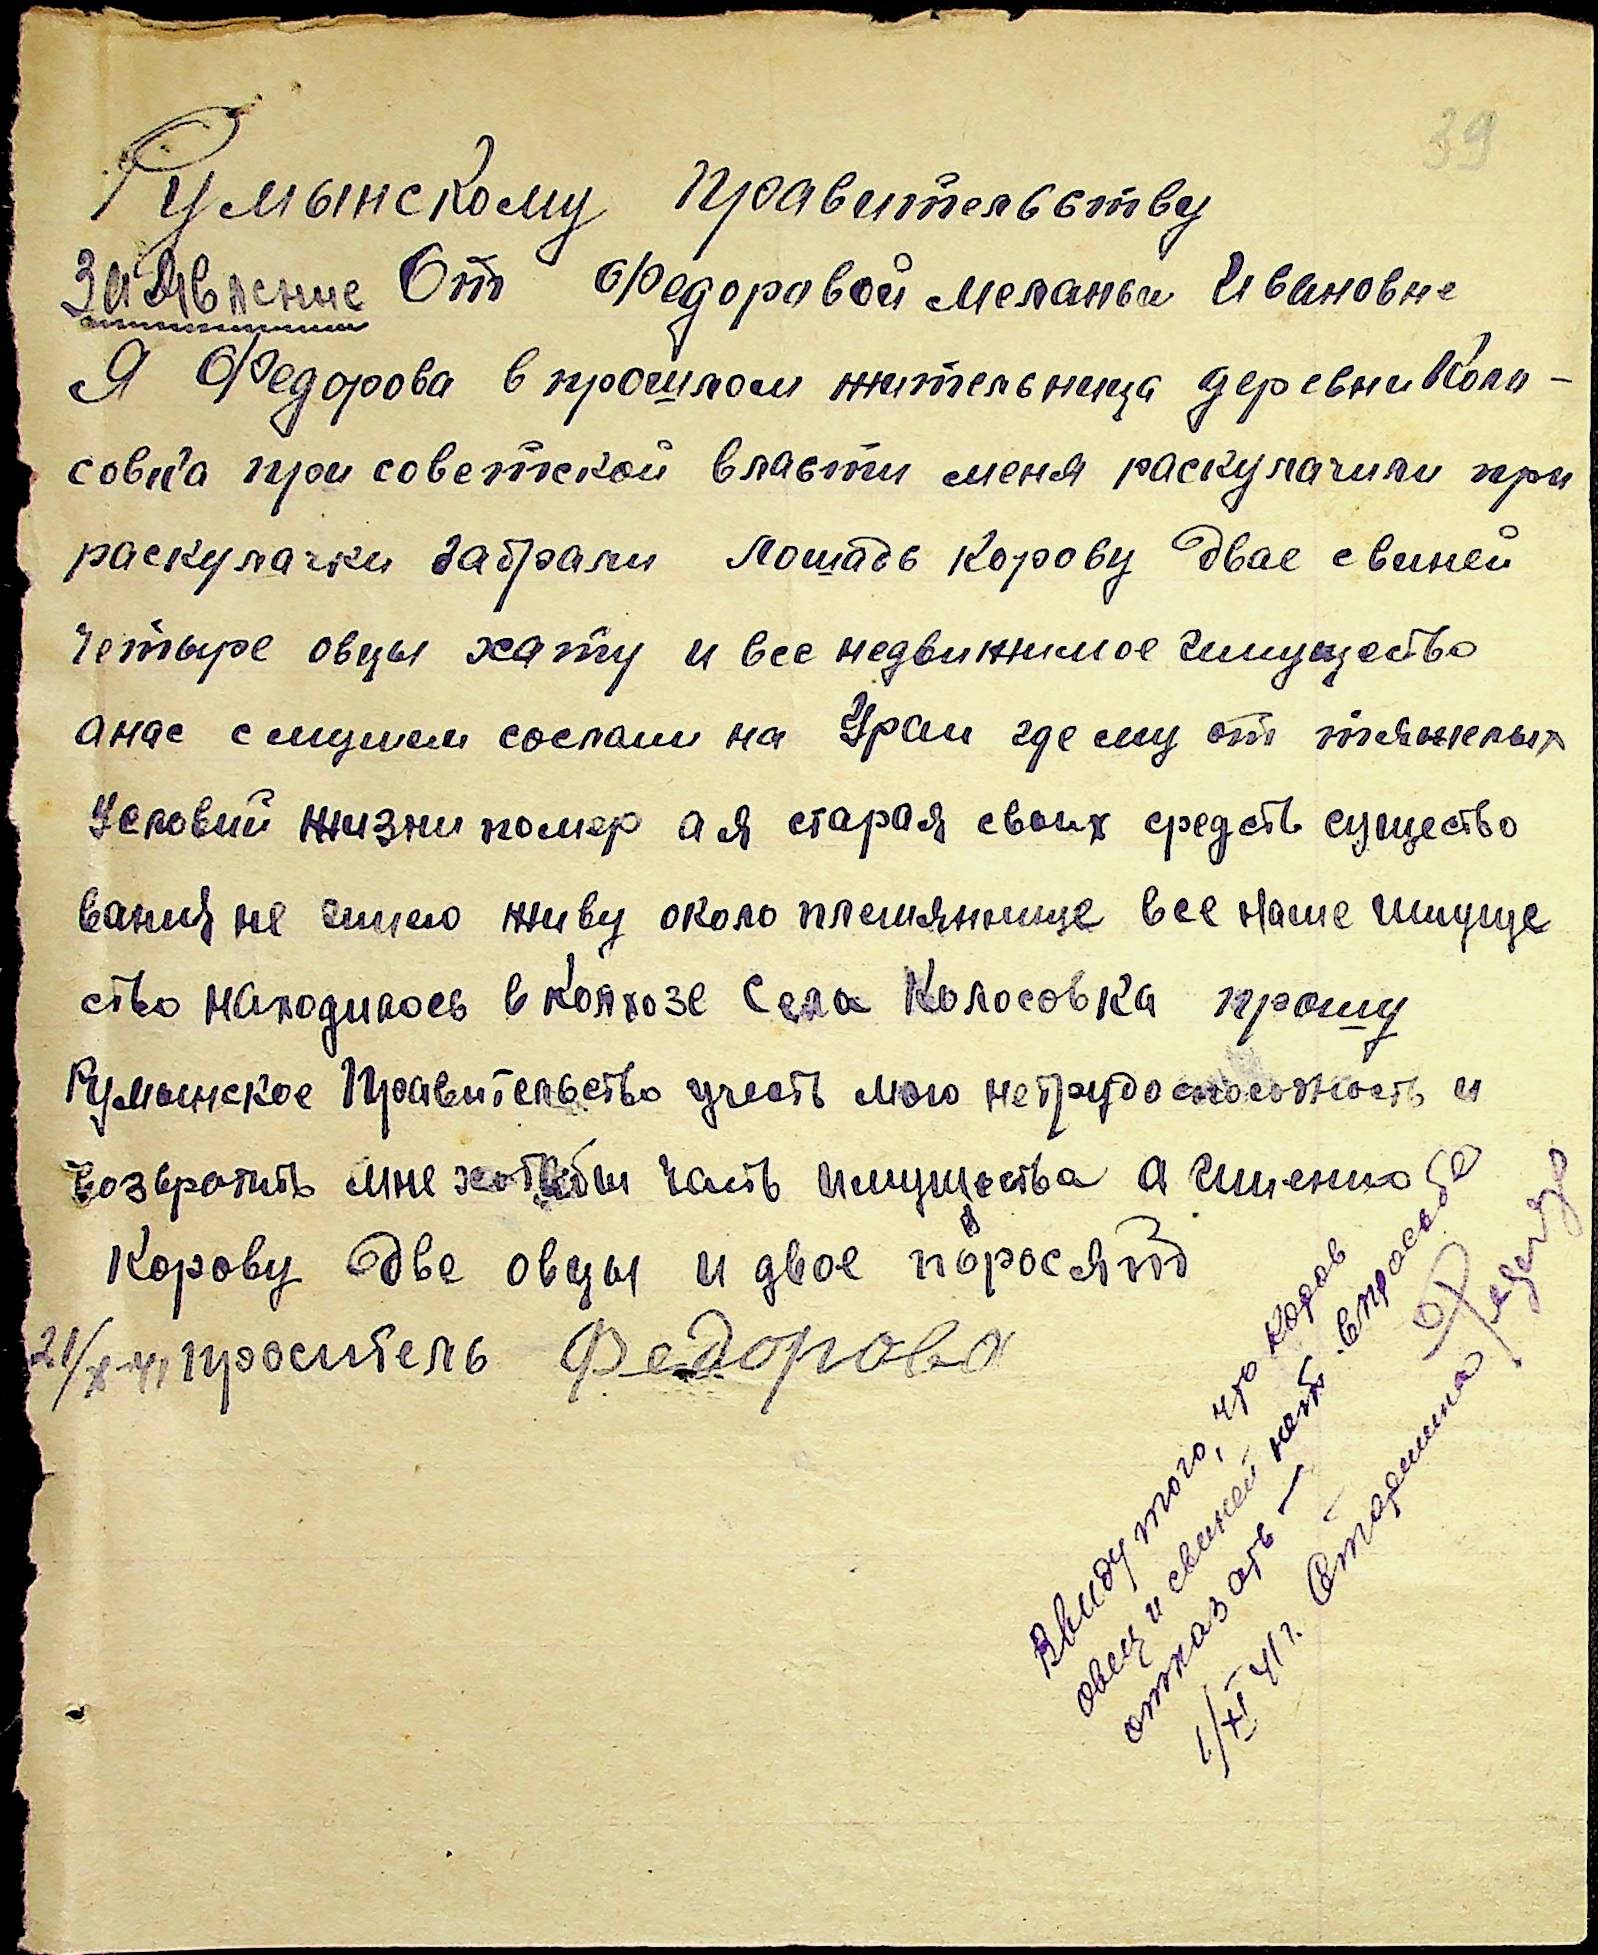 39
Румынскому Правительству
Заявление От Федоровой Меланьи Ивановне
Я Федорова в прошлом жительница деревни Коло-
совка при советской власти меня раскулачили при
раскулачки забрали лошадь корову двае свиней
четыре овцы хату и все недвижимое имущество
а нас с мужем сослали на Урал где муж от тяжелых
условий жизни помер а я старая своих средств существо
вания не имею живу около племяннице все наше имуще
ство находилось в колхозе Села Колосовка прошу
Румынское Правительство учесть мою нетрудоспособность и
возвратить мне хотябы часть имущества а именно
корову две овцы и двое поросят
21/X-41 проситель Федорова
Ввиду того, что коров
овец и свиней нет в просьбе
отказать —
1/XI 41 г. Старшина